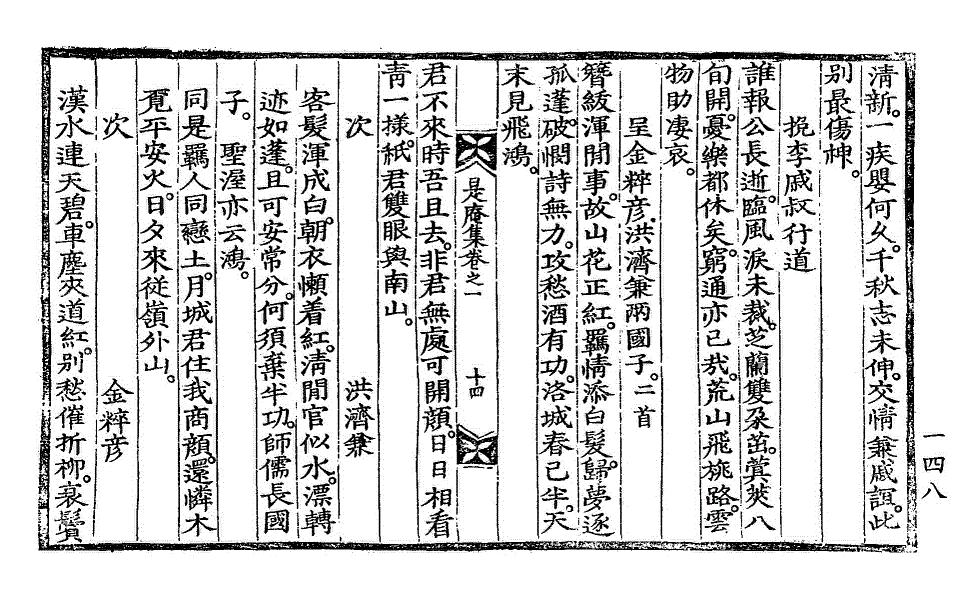 淸新。一疾嬰何久。千秋志未伸。交情兼戚誼。此
別最傷神。
挽李戚叔行道
誰報公長逝。臨風淚未裁。芝蘭雙朶茁。蓂莢八
旬開。憂樂都休矣。窮通亦已哉。荒山飛旐路。雲
物助凄哀。
呈金粹彦,洪濟兼兩國子。二首
簪紱渾閒事。故山花正紅。羈情添白髮。歸夢逐
孤蓬。破憫詩無力。攻愁酒有功。洛城春已半。天
末見飛鴻。
是庵集卷之一
十四
君不來時吾且去。非君無處可開顔。日日相看
靑一樣。紙君雙眼與南山。
次 洪濟兼
客髮渾成白。朝衣懶着紅。淸閒官似水。漂轉
迹如蓬。且可安常分。何須棄半功。師儒長國
子。聖渥亦云鴻。
同是羈人同戀土。月城君住我商顔。還憐木
覓平安火。日夕來從嶺外山。
次 金粹彦
漢水連天碧。車塵夾道紅。別愁催折柳。衰鬢
一四八